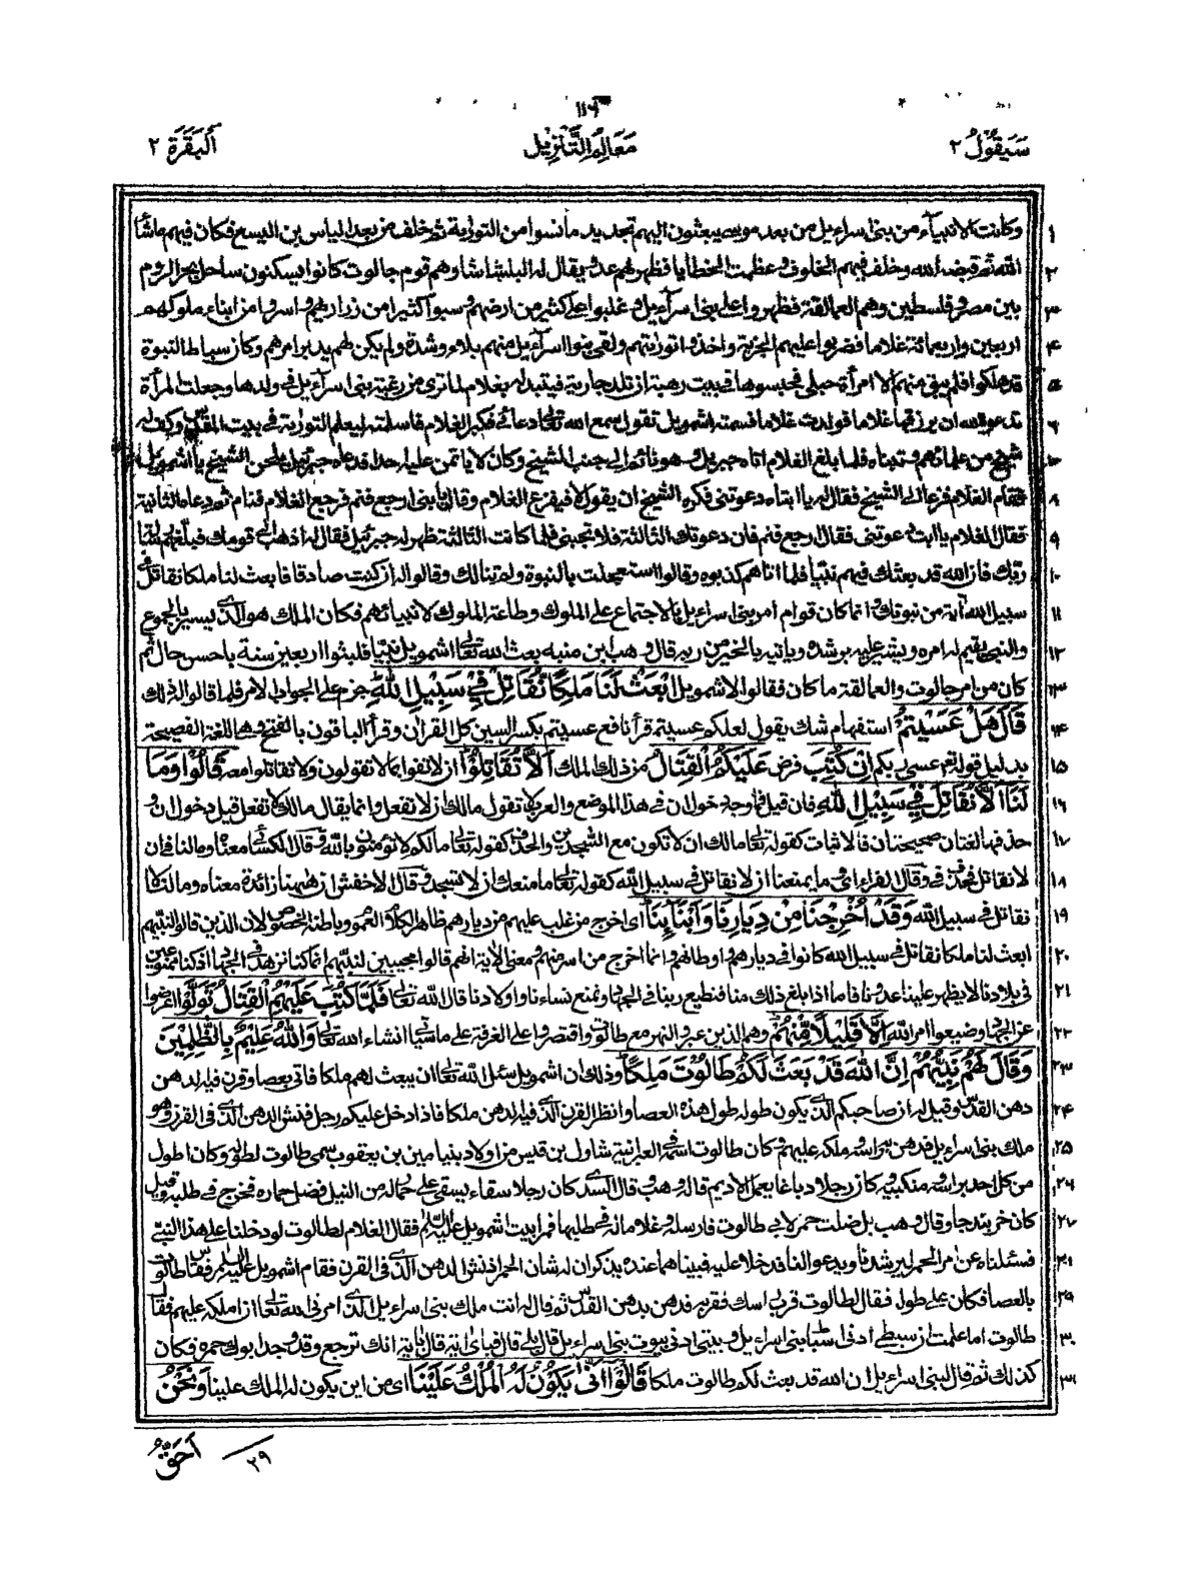 ١١٦
سَيَقُولُ ٢ مَعَالِمُ التَّنْزِيْل اَلْبَقَرَة ٢
وكانت الانبياء من بنى اسراءيل من بعد موسى يبعثون اليهم بتجديد ما نسوا من التورية ثم خلف من بعد الياس بن اليسع فكان فيهم ماشاء ١
الله ثم قبضه الله وخلف فيهم الخلوف وعظمت الخطايا فظهر لهم عدو يقال له البلشاشا وهم قوم جالوت كانوا يسكنون ساحل بحر الروم ٢
بين مصر وفلسطين وهم العمالقة فظهروا على بنى اسراءيل وغلبوا على كثير من ارضهم وسبوا كثيرا من زراريهم واسروا من ابناء ملوكهم ٣
اربعين واربعمائة غلاما فضربوا عليهم الجزية واخذوا توراتهم ولقى بنوا اسراءيل منهم بلاء وشدة ولم يكن لهم نبى يدبر امرهم وكان سبط النبوة ٤
قد هلكوا فلم يبق منهم الا امرأة حبلى فحبسوها فى بيت رهبة ان تلد جارية فيتبدله بغلام لما ترى من رغبة بنى اسراءيل فى ولدها وجعلت المرأة ٥
تدعو الله ان يرزقها غلاما فولدت غلاما فسمته اشمويل تقول سمع الله تعالى دعائى فكبر الغلام فاسلمته ليعلم التورية فى بيت المقدس وكفله ٦
شيخ من علمائهم وتبناه فلما بلغ الغلام اتاه جبريل وهو نائم الى جنب الشيخ وكان لا ياتمن عليه احدا فدعاه جبريل بلحن الشيخ يا اشمويل ٧
فقام الغلام فزعا الى الشيخ فقال له يا ابتاه دعوتنى فكره الشيخ ان يقول لا فيفزع الغلام وقال يا بنى ارجع فنم فرجع الغلام فنام ثم دعاه الثانية ٨
فقال الغلام يا ابت دعوتنى فقال ارجع فنم فان دعوتك الثالثة فلا تجبنى فلما كانت الثالثة ظهر له جبرئيل فقال له اذهب الى قومك فبلغهم رسالة ٩
ربك فان الله قد بعثك فيهم نبيا فلما اتاهم كذبوه وقالوا استعجلت بالنبوة ولم تنالك وقالوا له ان كنت صادقا فابعث لنا ملكا نقاتل فى ١٠
سبيل الله آية من نبوتك وانما كان قوام امر بنى اسراءيل بالاجتماع على الملوك وطاعة الملوك لانبيائهم فكان الملك هو الذى يسير بالجموع ١١
والنبى يقيم له امره ويشير عليه برشده وياتيه بالخير من ربه قال وهب بن منبه بعث الله تعالى اشمويل نبيا فلبثوا اربعين سنة باحسن حال ثم ١٢
كان من امر جالوت والعمالقة ما كان فقالوا لاشمويل ابْعَثْ لَنَا مَلِكًا نُّقَاتِلْ فِيْ سَبِيْلِ اللّٰهِ جزم على الجواب للامر فلما قالوا له ذلك ١٣
قَالَ هَلْ عَسَيْتُمْ استفهام شك يقول لعلكم عسيتم قرأ نافع عسيتم بكسر السين كل القران وقرأ الباقون بالفتح وهى اللغة الفصيحة ١٤
بدليل قوله تعالى عسى ربكم اِنْ كُتِبَ فرض عَلَيْكُمُ الْقِتَالُ مع ذلك الملك اَلَّا تُقَاتِلُوْا ان لا تفوا بما تقولون ولا تقاتلوا معه قَالُوْا وَمَا ١٥
لَنَا اَلَّا نُقَاتِلَ فِيْ سَبِيْلِ اللّٰهِ فان قيل فما وجه دخول ان فى هذا الموضع والعرب لا تقول مالك ان لا تفعل وانما يقال مالك لا تفعل قيل دخول ان و ١٦
حذفها لغتان صحيحتان فالاثبات كقوله تعالى مالك ان لا تكون مع الشجدين والحذف كقوله تعالى مالكم لا تؤمنون بالله وقال الكسائى معناه ومالنا فى ان ١٧
لا نقاتل فحذف فى وقال الفراء اى وما يمنعنا ان لا نقاتل فى سبيل الله كقوله تعالى ما منعك ان لا تسجد وقال الاخفش ان ههنا زائدة معناه ومالنا لا ١٨
نقاتل فى سبيل الله وَقَدْ اُخْرِجْنَا مِنْ دِيَارِنَا وَاَبْنَآئِنَا اى اخرج من غلب عليهم من ديارهم ظاهر الكلام العموم وباطنه الخصوص لان الذين قالوا لنبيهم ١٩
ابعث لنا ملكا نقاتل فى سبيل الله كانوا فى ديارهم واوطانهم وانما اخرج من اسر منهم ومعنى الاية انهم قالوا مجيبين لنبيهم انما كنا نزهد فى الجهاد اذ كنا ممنوعين ٢٠
فى بلادنا لا يظهر علينا عدونا فاما اذا بلغ ذلك منا فنطيع ربنا فى الجهاد ونمنع نساءنا واولادنا قال الله تعالى فَلَمَّا كُتِبَ عَلَيْهِمُ الْقِتَالُ تَوَلَّوْا اعرضوا ٢١
عن الجهاد وضيعوا امر الله اِلَّا قَلِيْلًا مِّنْهُمْ وهم الذين عبروا النهر مع طالوت واقتصروا على الغرفة على ما سيأتى انشاء الله تعالى وَاللّٰهُ عَلِيْمٌ بِالظّٰلِمِيْنَ ٢٢
وَقَالَ لَهُمْ نَبِيُّهُمْ اِنَّ اللّٰهَ قَدْ بَعَثَ لَكُمْ طَالُوْتَ مَلِكًا وذلك ان اشمويل سئل الله تعالى ان يبعث لهم ملكا فاتى بعصا وقرن فيه دهن ٢٣
دهن القدس وقيل له ان صاحبكم الذى يكون طوله طول هذه العصا وانظر القرن الذى فيه الدهن ملكا فاذا دخل عليكم رجل فنش الدهن الذى فى القرن وهو ٢٤
ملك بنى اسراءيل فدهن به راسه وملكه عليهم وكان طالوت اسمه فى العبرانية شاول بن قيس من اولاد بنيامين بن يعقوب سمى طالوت لطوله وكان اطول ٢٥
من كل احد براسه ومنكبيه وكان رجلا دباغا يعمل الاديم قاله وهب وقال السدى كان رجلا سقاء يسقى على حمار له من النيل فضل حماره فخرج فى طلبه وقيل ٢٦
كان خربندجا وقال وهب بل ضلت حمر لابى طالوت فارسله وغلاما له فى طلبها فمرا ببيت اشمويل عليه السلام فقال الغلام لطالوت لو دخلنا على هذا النبى ٢٧
فسئلناه عن امر الحمر ليرشدنا ويدعو لنا فدخلا عليه فبيناهما عنده يذكران له شان الحمر اذ نش الدهن الذى فى القرن فقام اشمويل عليه السلام فقاس طالوت ٢٨
بالعصا فكان على طوله فقال لطالوت قرب راسك فقربه فدهن بدهن القدس ثم قال له انت ملك بنى اسراءيل الذى امرنى الله تعالى ان املكه عليهم فقال ٢٩
طالوت اما علمت ان سبطى ادنى اسباط بنى اسراءيل وبيتى ادنى بيوت بنى اسراءيل قال بلى قال فباى اية قال باية انك ترجع وقد وجد ابوك حمره فكان ٣٠
كذلك ثم قال لبنى اسراءيل ان الله قد بعث لكم طالوت ملكا قَالُوْا اَنّٰى يَكُوْنُ لَهُ الْمُلْكُ عَلَيْنَا اى من اين يكون له الملك علينا وَنَحْنُ ٣١
٢٩ اَحَقُّ